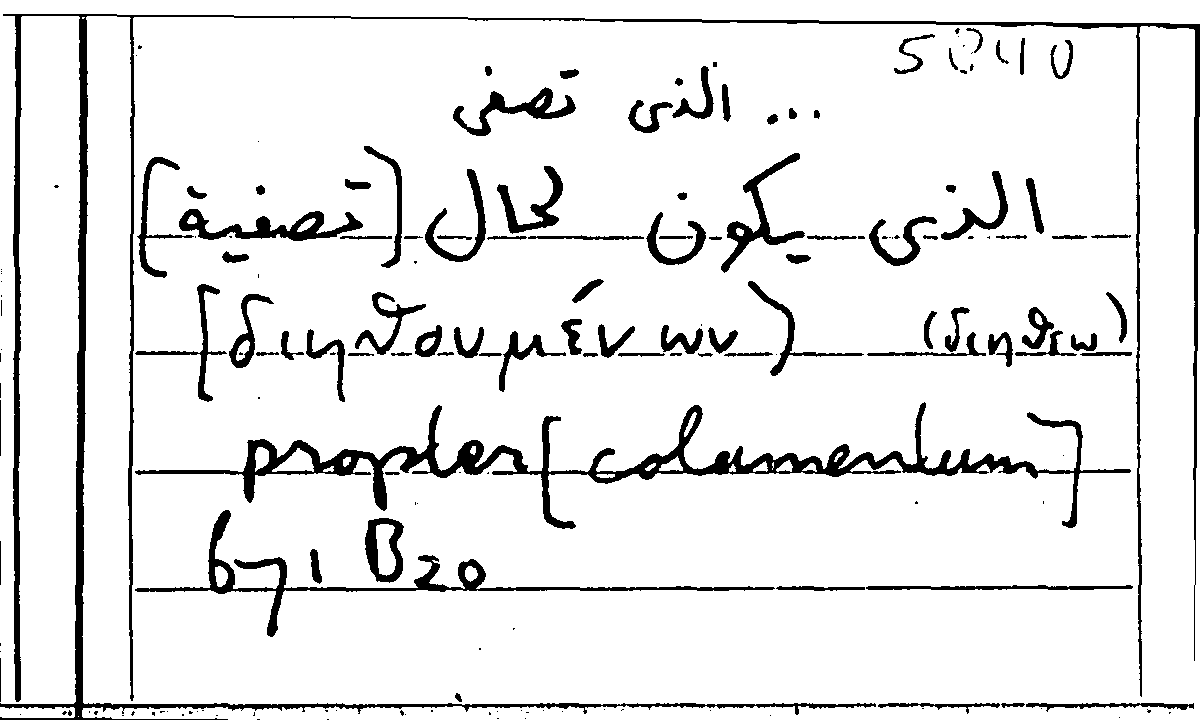 5040
... الذى تصفى
الذى يكون لحال [تصفية]
[διηθουμένων) (διηθεω)
propter [colamentum]
671 B20